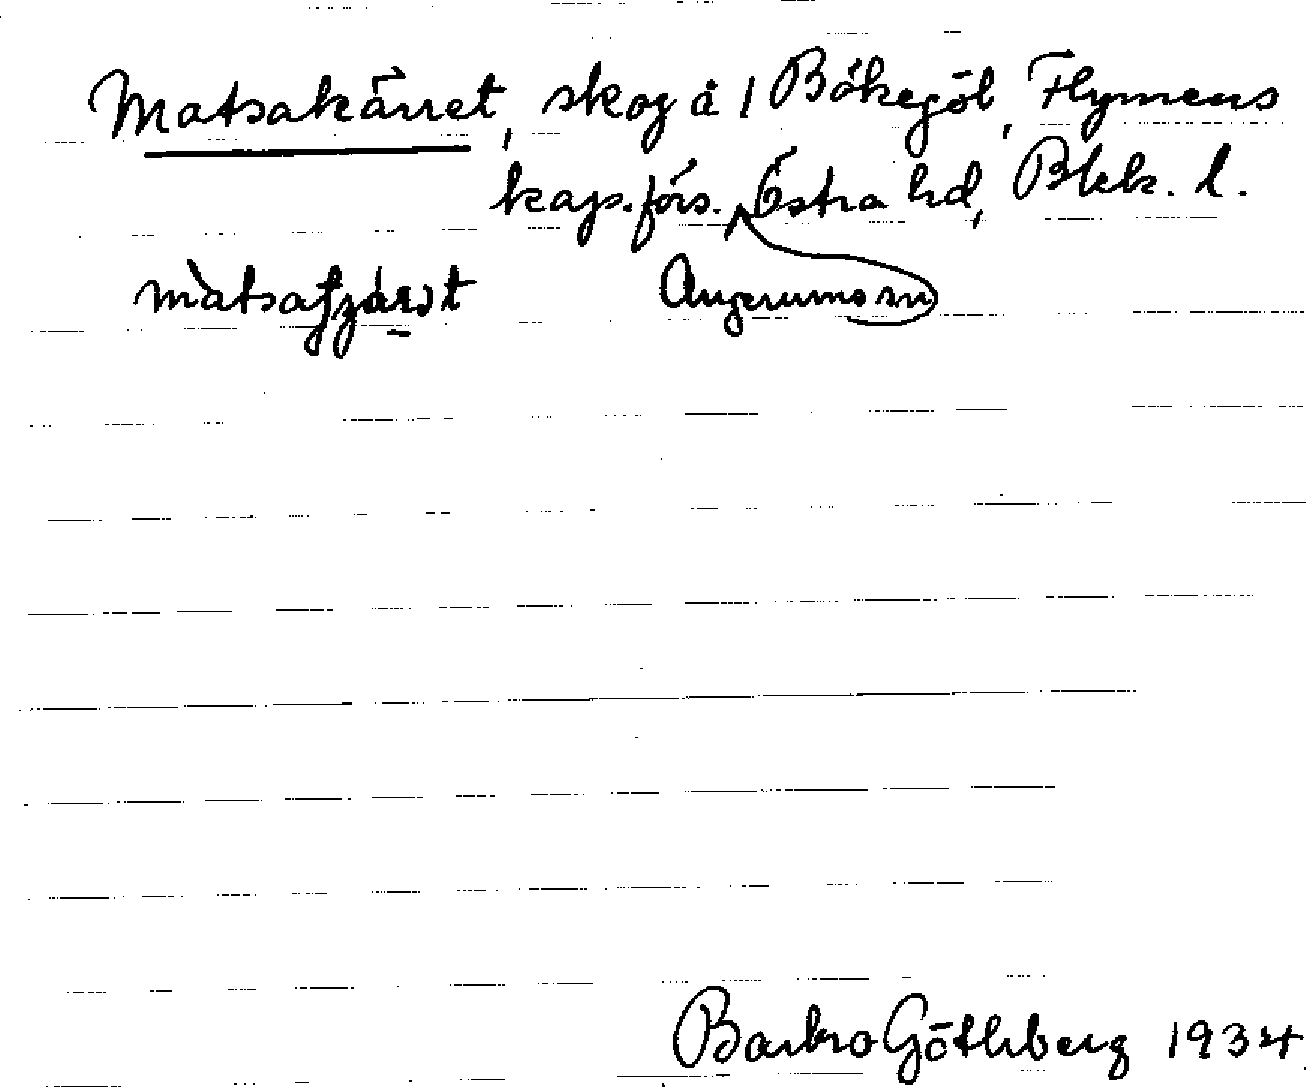 Matsakärret, skog å 1 Bökegöl, Flymens
kaps.förs. Östra hd, Blek. l.
Augerums sn
Barbro Göthberg 1934